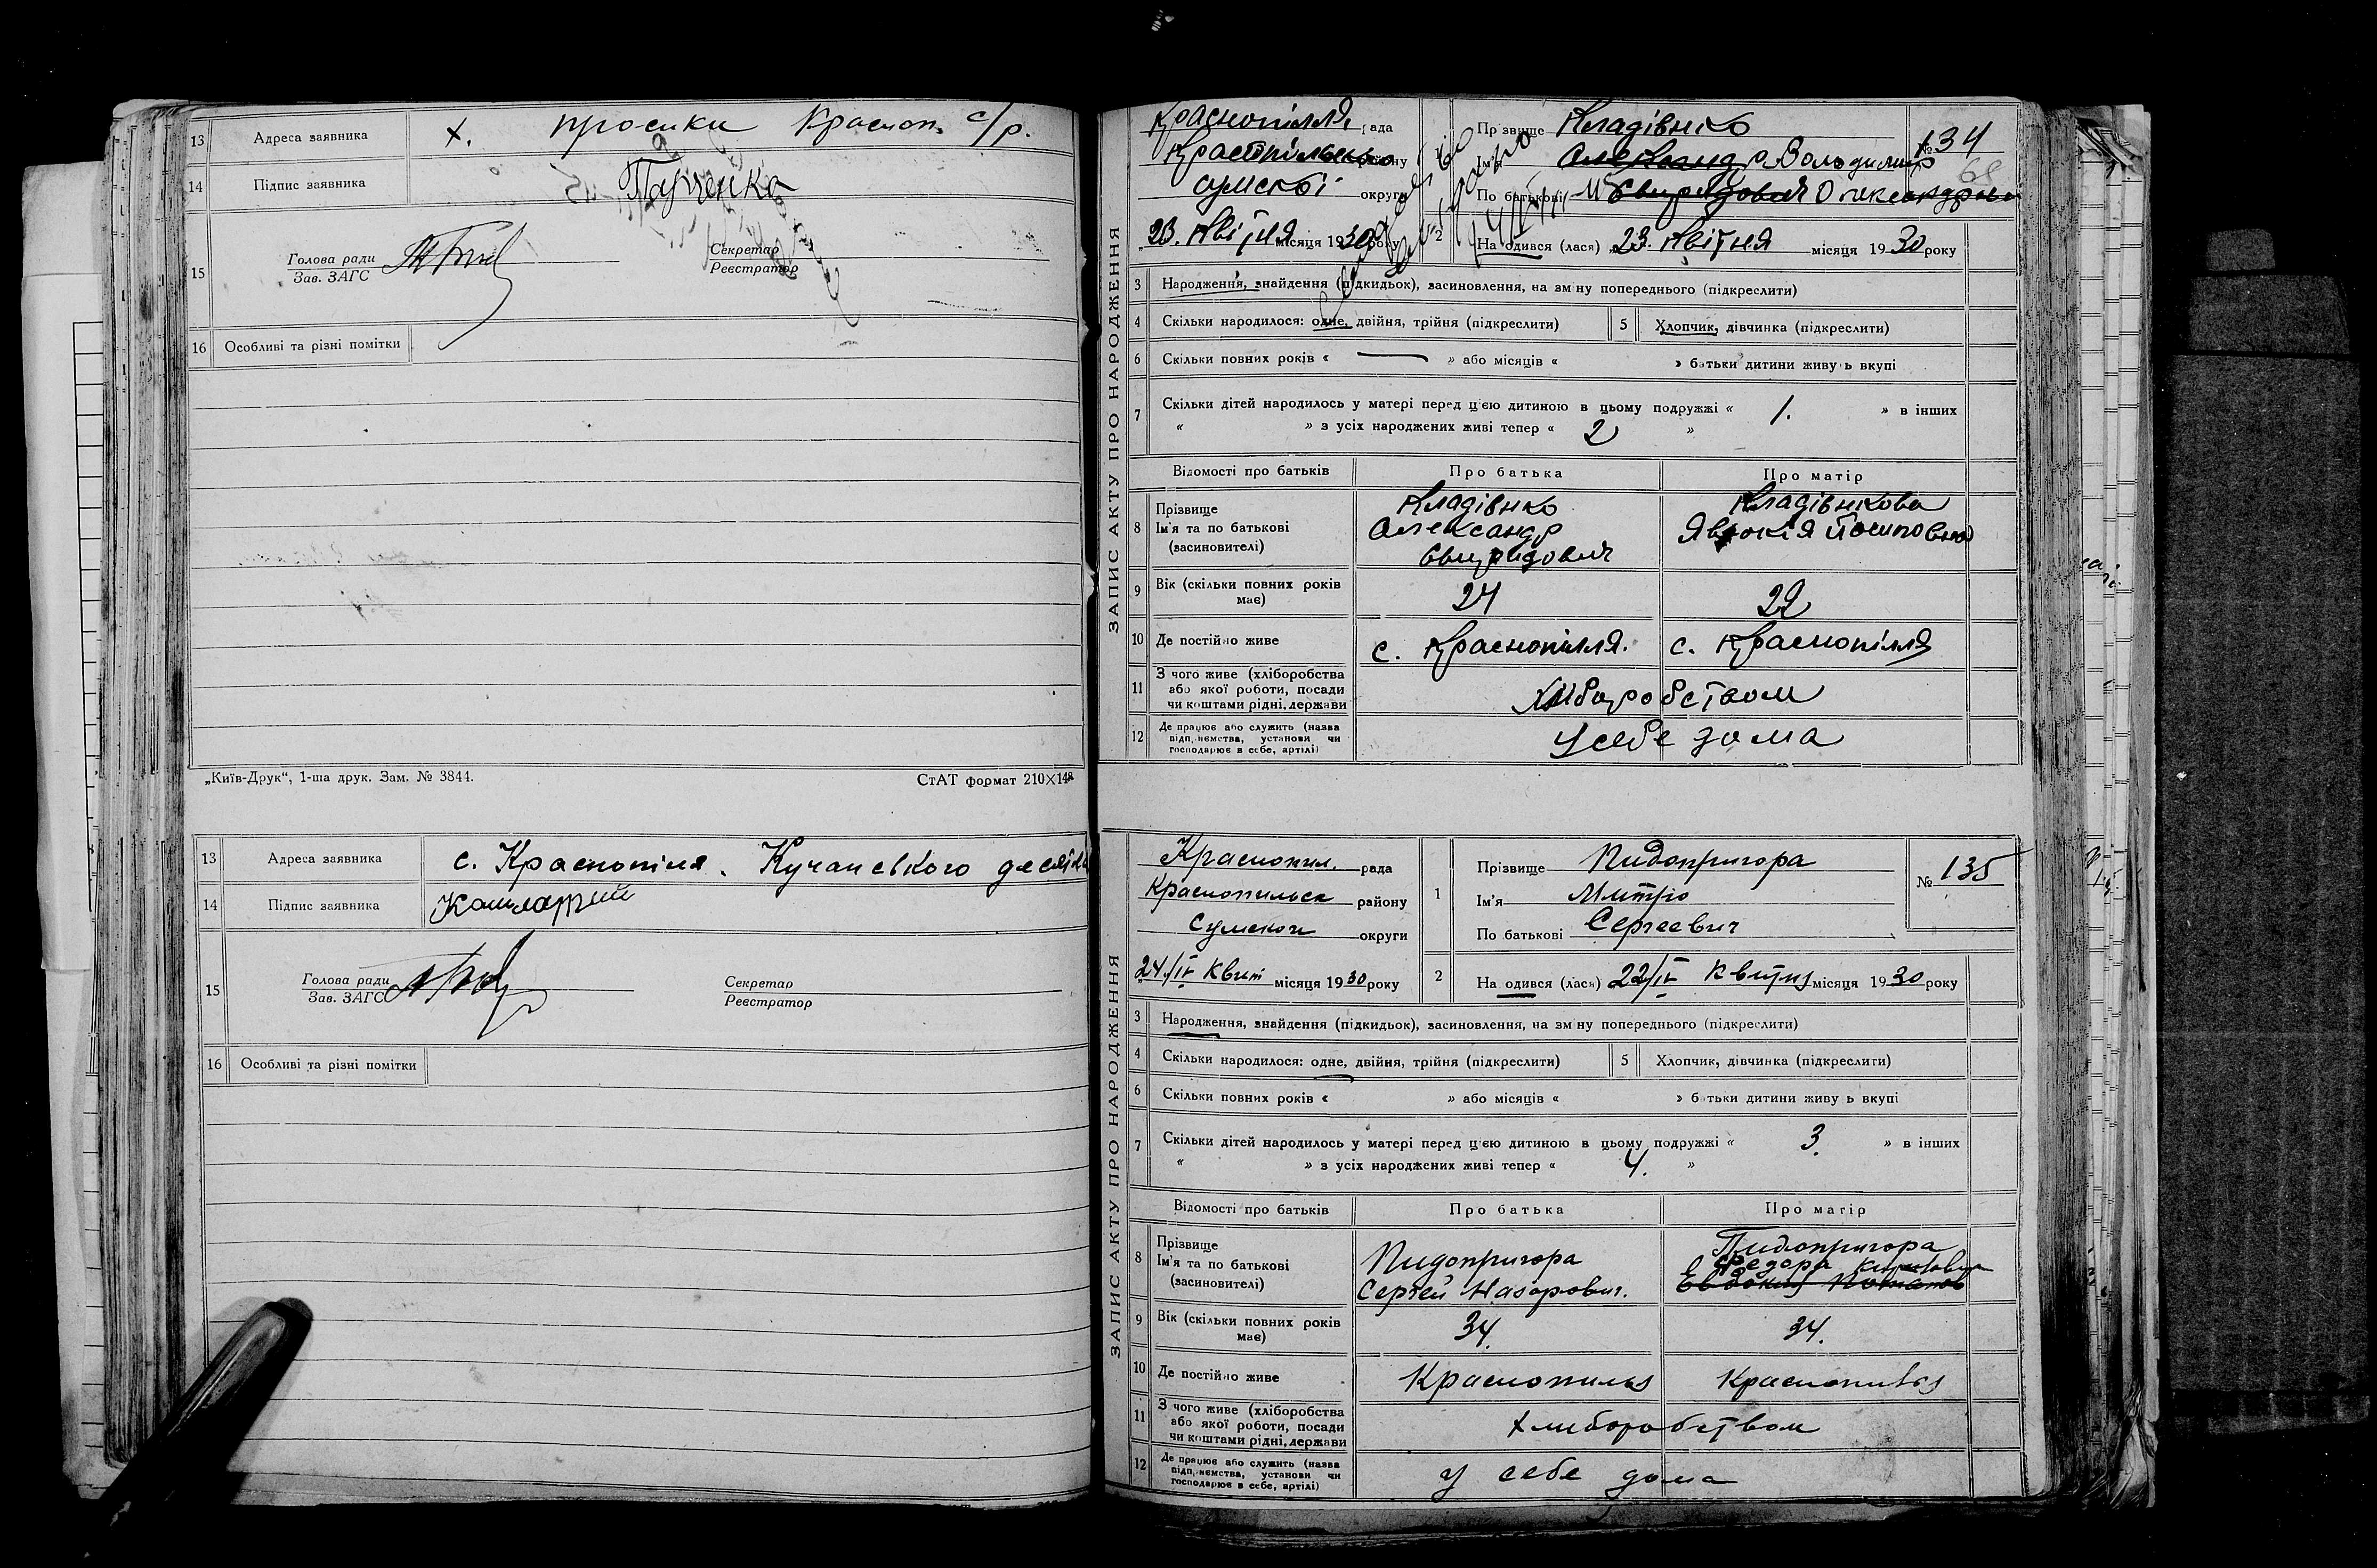 13 Адреса заявника х. Просики Красноп. с/р.
14 Підпис заявника
15 Голова ради Секретар
Зав. ЗАГС Реєстратор
16 Особливі та різні помітки
„Київ-Друк“, 1-ша друк. Зам. № 3844. СтАТ формат 210×148
13 Адреса заявника с. Краснопіля. Кучанського
14 Підпис заявника
15 Голова ради Секретар
Зав. ЗАГС Реєстратор
16 Особливі та різні помітки
ЗАПИС АКТУ ПРО НАРОДЖЕННЯ
Краснопілля рада Прізвище Кладівнко №134
району Ім'я Александр Володимир 68
Сумскої округи По батькові Свиридович Олександрович
23. Квітня місяця 1930 року 2 Народився (лася) 23. Квітня місяця 1930 року
3 Народження, знайдення (підкидьок), засиновлення, на зміну попереднього (підкреслити)
4 Скільки народилося: одне, двійня, трійня (підкреслити) 5 Хлопчик, дівчинка (підкреслити)
6 Скільки повних років « — » або місяців « » батьки дитини живуть вкупі
7 Скільки дітей народилось у матері перед цією дитиною в цьому подружжі « 1. » в інших
« » з усіх народжених живі тепер « 2 »
Відомості про батьків Про батька Про матір
8 Прізвище Кладівнко Кладівнкова
Ім'я та по батькові Александр Явдокія Йосиповна
(засиновителі) Свиридович
9 Вік (скільки повних років має) 24 22
10 Де постійно живе с. Краснопілля. с. Краснопілля
11 З чого живе (хліборобства
або якої роботи, посади Хліборобством
чи коштами рідні, держави
12 Де працює або служить (назва
підприємства, установи чи У себе дома
господарює в себе, артілі)
ЗАПИС АКТУ ПРО НАРОДЖЕННЯ
Краснопил. рада 1 Прізвище Пидопригора № 135
Краснопильск району Ім'я Митро
Сумскои округи По батькові Сергеевич
24/IV Квит місяця 1930 року 2 Народився (лася) 22/IV Квитня місяця 1930 року
3 Народження, знайдення (підкидьок), засиновлення, на зміну попереднього (підкреслити)
4 Скільки народилося: одне, двійня, трійня (підкреслити) 5 Хлопчик, дівчинка (підкреслити)
6 Скільки повних років « » або місяців « » батьки дитини живуть вкупі
7 Скільки дітей народилось у матері перед цією дитиною в цьому подружжі « 3. » в інших
« » з усіх народжених живі тепер « 4. »
Відомості про батьків Про батька Про матір
8 Прізвище Пидопригора
Ім'я та по батькові Пидопригора Федора
(засиновителі) Сергей Назорович.
9 Вік (скільки повних років має) 34. 34.
10 Де постійно живе Краснопиля Краснопиля
11 З чого живе (хліборобства
або якої роботи, посади хлиборобством
чи коштами рідні, держави
12 Де працює або служить (назва
підприємства, установи чи у себе дома
господарює в себе, артілі)